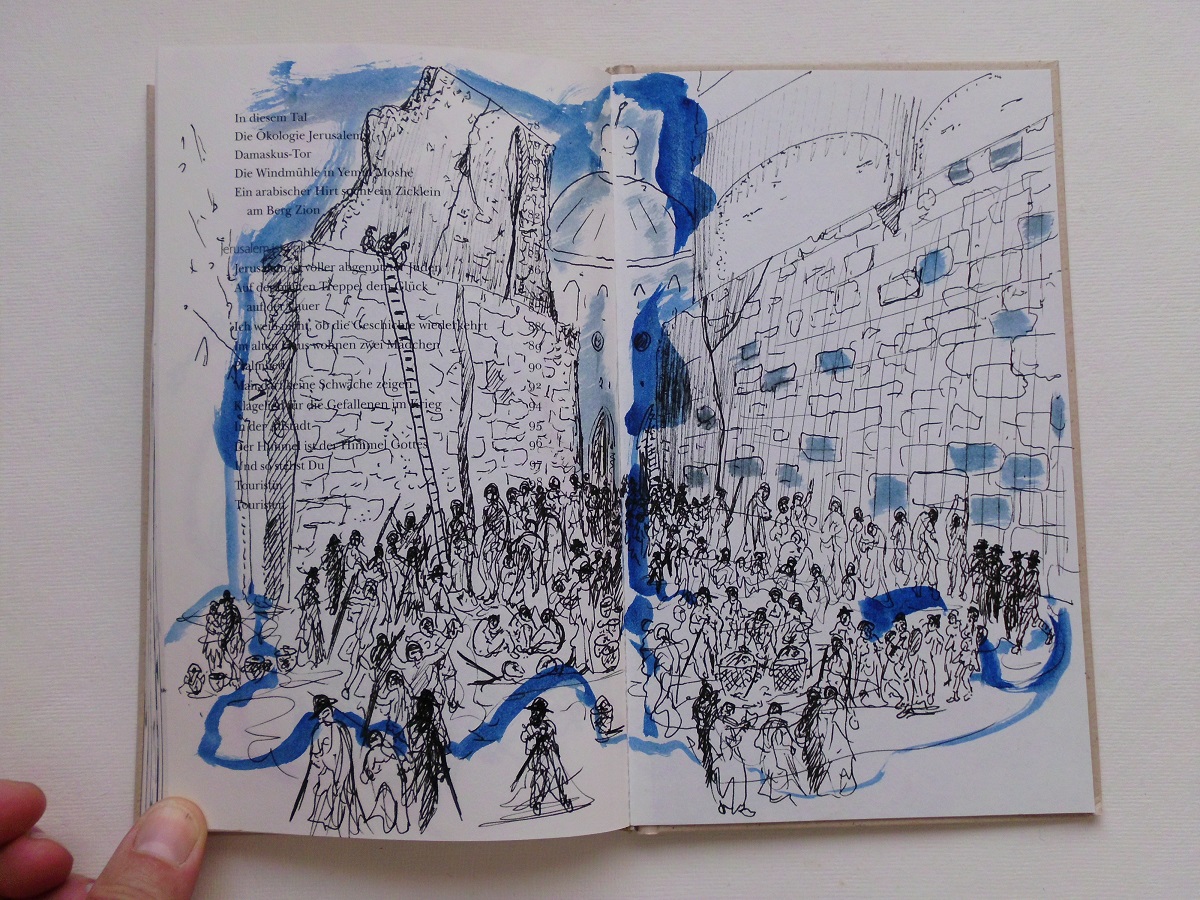 In diesem Tal 78
Die Ökologie Jerusalems
Damaskus-Tor
Die Windmühle in Yemin Moshé
Ein arabischer Hirt sucht ein Zicklein
am Berg Zion
Jerusalem
Jerusalem ist voller abgenutzter Juden 86
Auf der breiten Treppe, dem Glück
auf der Lauer
Ich weiß nicht, ob die Geschichte wiederkehrt 88
Im alten Haus wohnen zwei Mädchen 89
90
Man darf keine Schwäche zeigen 92
Klagelied für die Gefallenen im Krieg 94
In der Altstadt 95
Der Himmel ist der Himmel Gottes 96
Und so stehst Du 97
Touristin
Touristen